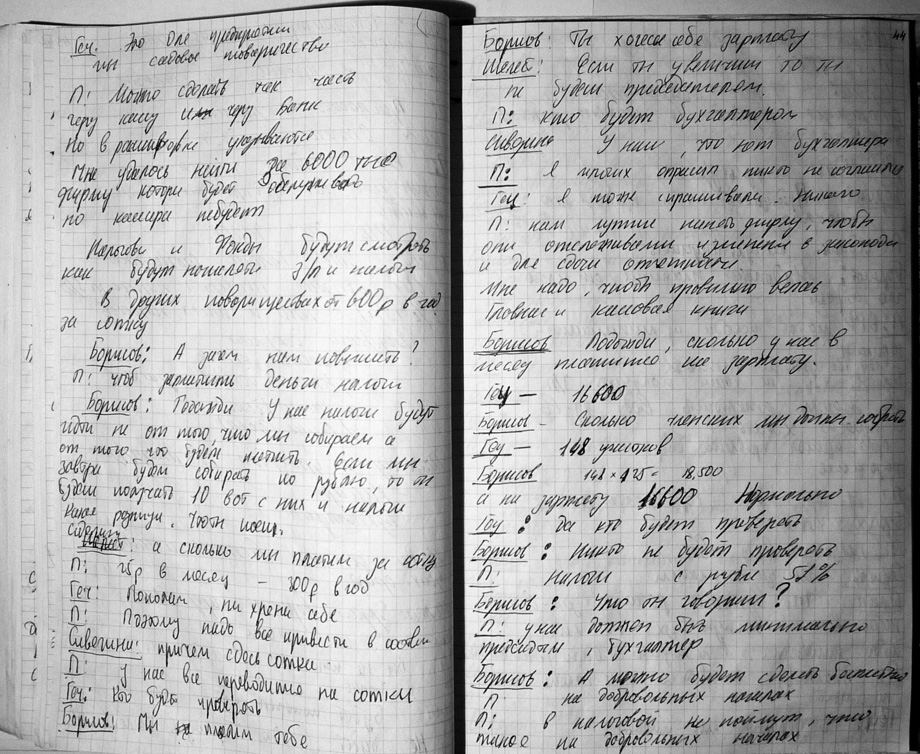 Геч. Это для предприятий
мы садовое товарищество
П: Можно сделать так часть
черу кассу или черу Банк
Но в расшифровке указывается
Мне удалось найти за 6000 тыс
фирму котора будет обслуживать
но кассира небудет
Налоговая и Фонды будут смотреть
как будут начислять з/п и налоги
В других товариществах от 600р в год
за сотку
Борисов: А зачем нам повышать?
П: чтоб заплатить деньги налоги
Борисов: Подожди У нас налоги будут
идти не от того, что мы собираем а
от того что будем платить. Если мы
завтра будем собирать по рублю, то ты
будеш получать 10 вот с них и налоги
Какая разница.
: а сколько мы платим за сотку
П: 25р в месяц - 300р в год
Геч: Пополам, ни хрена себе
П: Поэтому надо все привести в
Сивогина: причем здесь сотка
П: у нас все переводится на сотки
Геч: Кто будет проверять
Борисов: Мы платим тебе
44
Борисов: Ты хочеш себе зарплату
Шелест: Если ты увеличиш то ты
не будеш председателем.
П: кто будет бухгалтером
Сивогина У нас, что нет бухгалтера
П: Я многих опрасил никто не согласился
Геч: Я тоже спрашивала. Никого
П: нам лутше нанять фирму, чтобы
они отслеживали изменения в
и для сдачи отчетности.
Мне надо, чтобы правильно велась
Главная и кассовая книги
Борисов Подожди, сколько у нас в
месяц платится на зарплату.
Геч — 16600
Борисов - Сколько членских мы должны собрать
Геч — 148 участков
Борисов 148 × 125 = 18,500
а на зарплату 16600 Нормально
Геч: да кто будет проверять
Борисов: Никто не будет проверять
П: налоги с рубля 57%
Борисов: Что ты говориш?
П: у нас должен быть минимально
председатель, бухгалтер
Борисов: А можно будет сделать бесплатно
П: на добровольных началах
П: в налоговой не поймут, что
такое на добровольных началах